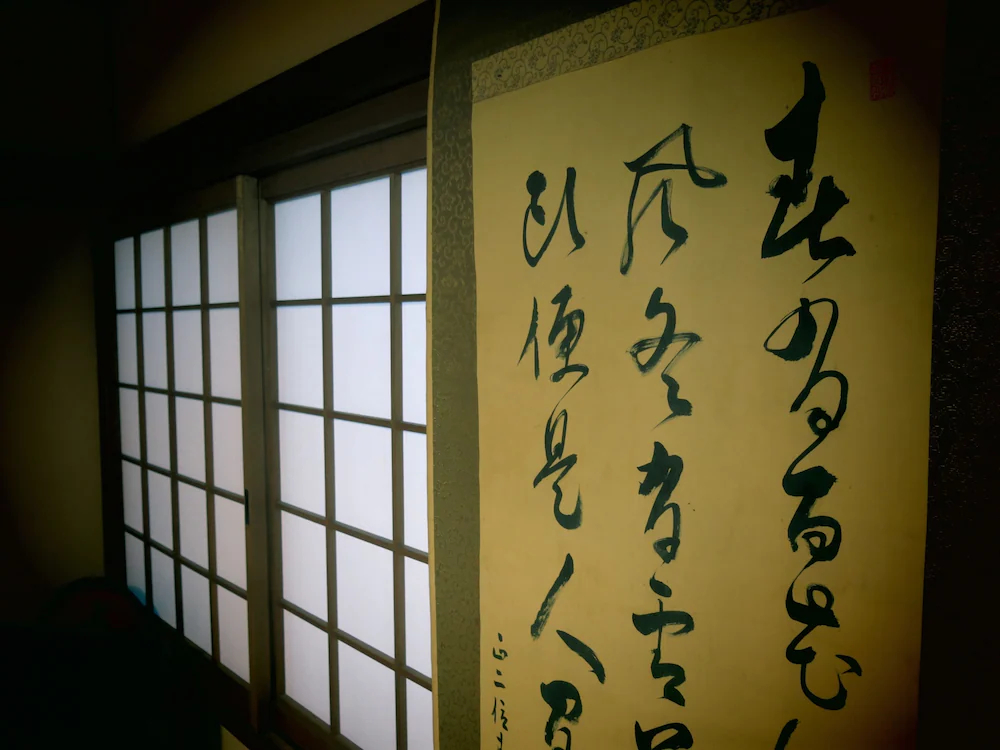 春有百花
風冬有雪
頭便是人間